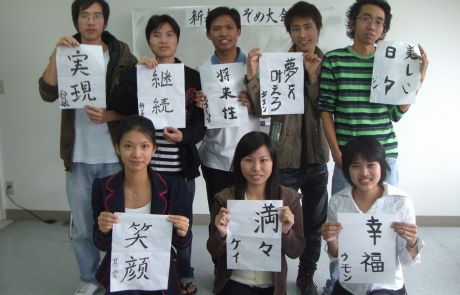 新
ぞめ大会
実現
継続
将来性
夢を
叶える
美しい
日々
笑顔
満々
ケイ
幸福
ウモン